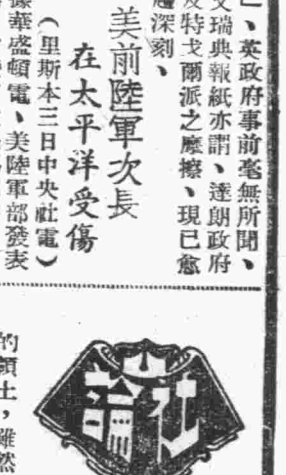 、英政府事前毫無所聞、
瑞典報紙亦謂、達朗政府
及特戈爾派之磨擦、現已愈
趨深刻、
美前陸軍次長
在太平洋受傷
（里斯本三日中央社電）
據華盛頓電、美陸軍部發表
社論
的領土，雖然